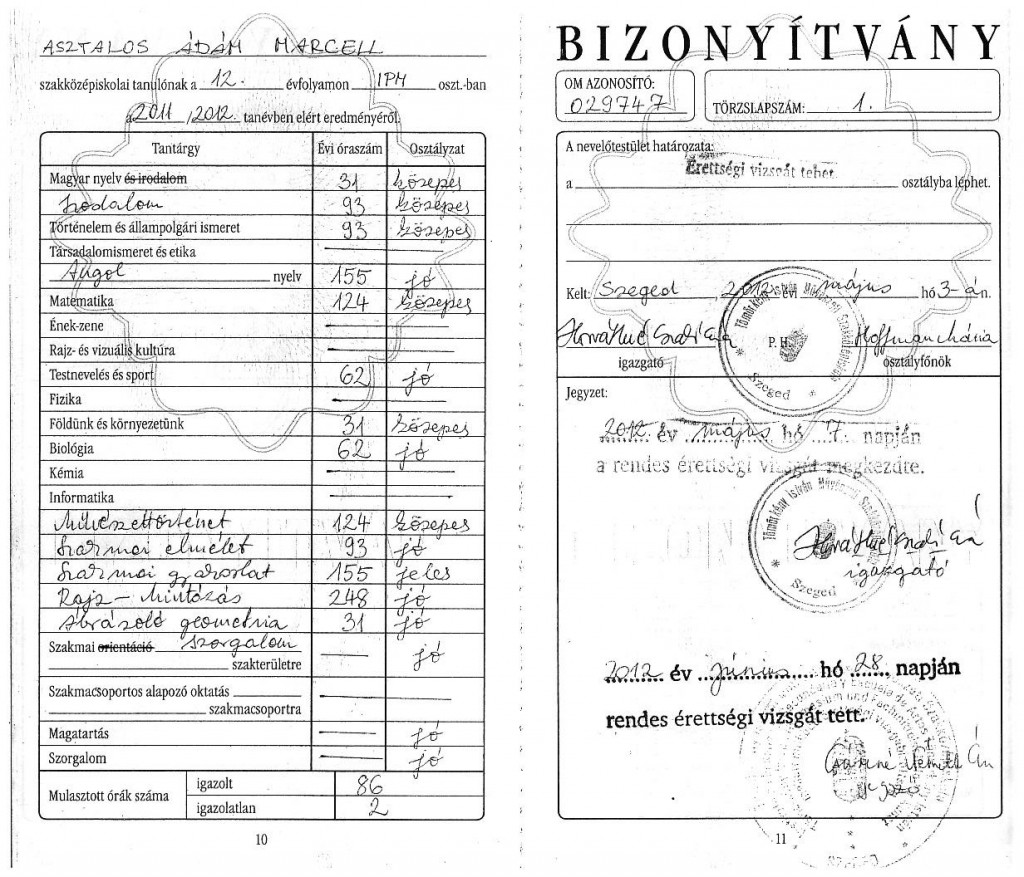 ASZTALOS ÁDÁM MARCELL
szakközépiskolai tanulónak a 12. évfolyamon IPM oszt.-ban
a 2011 /2012. tanévben elért eredményéről.
Tantárgy Évi óraszám Osztályzat
Magyar nyelv és irodalom 31 közepes
Irodalom 93 közepes
Történelem és állampolgári ismeret 93 közepes
Társadalomismeret és etika
Angol nyelv 155 jó
Matematika 124 közepes
Ének-zene
Rajz- és vizuális kultúra
Testnevelés és sport 62 jó
Fizika
Földünk és környezetünk 31 közepes
Biológia 62 jó
Kémia
Informatika
Művészettörténet 124 közepes
Szakmai elmélet 93 jó
Szakmai gyakorlat 155 jeles
Rajz- Mintázás 248 jó
Ábrázoló geometria 31 jó
Szakmai orientáció Szorgalom
szakterületre jó
Szakmacsoportos alapozó oktatás
szakmacsoportra
Magatartás jó
Szorgalom jó
Mulasztott órák száma
igazolt 86
igazolatlan 2
10
BIZONYÍTVÁNY
OM AZONOSÍTÓ:
029747
TÖRZSLAPSZÁM: 1.
A nevelőtestület határozata:
Érettségi vizsgát tehet.
a osztályba léphet.
Kelt: Szeged, 2012 évi május hó 3-án.
P. H.
Hoffman Mária
igazgató osztályfőnök
Tömörkény István Művészeti Szakközépiskola
* Szeged *
Jegyzet:
2012. év május hó 7. napján
a rendes érettségi vizsgát megkezdte.
Tömörkény István Művészeti Szakközépiskola
* Szeged *
igazgató
2012 év június hó 28. napján
rendes érettségi vizsgát tett.
SZEGED
11